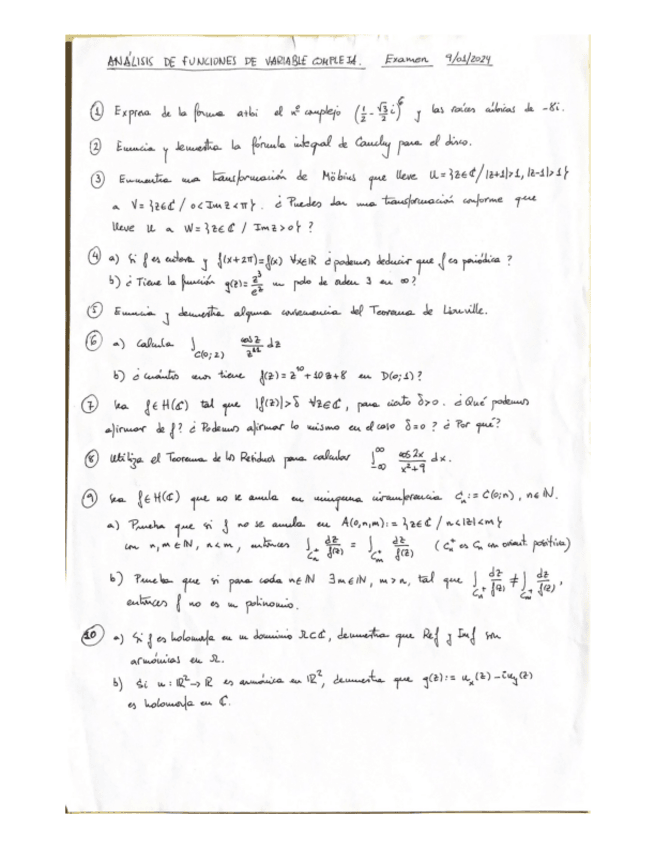 ANÁLISIS DE FUNCIONES DE VARIABLE COMPLEJA. Examen 9/01/2024
① Expresa de la forma a+bi el nº complejo (1/2 - √3/2 i)^6 y las raíces cúbicas de -8i.
② Enuncia y demuestra la fórmula integral de Cauchy para el disco.
③ Encuentra una transformación de Möbius que lleve U = {z∈ℂ / |z+1|>1, |z-1|>1}
a V = {z∈ℂ / 0<Im z<π}. ¿Puedes dar una transformación conforme que
lleve U a W = {z∈ℂ / Im z>0}?
④ a) Si f es entera y f(x+2π)=f(x) ∀x∈ℝ ¿podemos deducir que f es periódica?
b) ¿Tiene la función g(z)= z³/e^z un polo de orden 3 en ∞?
⑤ Enuncia y demuestra alguna consecuencia del Teorema de Liouville.
⑥ a) Calcula ∫_{C(0;2)} cos z / z^11 dz
b) ¿Cuántos ceros tiene f(z)=z^10+10z+8 en D(0;1)?
⑦ Sea f∈H(ℂ) tal que |f(z)|>δ ∀z∈ℂ, para cierto δ>0. ¿Qué podemos
afirmar de f? ¿Podemos afirmar lo mismo en el caso δ=0? ¿Por qué?
⑧ Utiliza el Teorema de los Residuos para calcular ∫_{-∞}^{∞} cos 2x / (x²+9) dx.
⑨ Sea f∈H(ℂ) que no se anula en ninguna circunferencia C_n := C(0;n), n∈ℕ.
a) Prueba que si f no se anula en A(0,n,m):= {z∈ℂ / n<|z|<m}
con n,m∈ℕ, n<m, entonces ∫_{C_n^+} dz/f(z) = ∫_{C_m^+} dz/f(z) (C_n^+ es C_n con orient. positiva)
b) Prueba que si para cada n∈ℕ ∃m∈ℕ, m>n, tal que ∫_{C_n^+} dz/f(z) ≠ ∫_{C_m^+} dz/f(z),
entonces f no es un polinomio.
⑩ a) Si f es holomorfa en un dominio Ω⊂ℂ, demuestra que Ref y Imf son
armónicas en Ω.
b) Si u:ℝ²→ℝ es armónica en ℝ², demuestra que g(z):= u_x(z)-iu_y(z)
es holomorfa en ℂ.